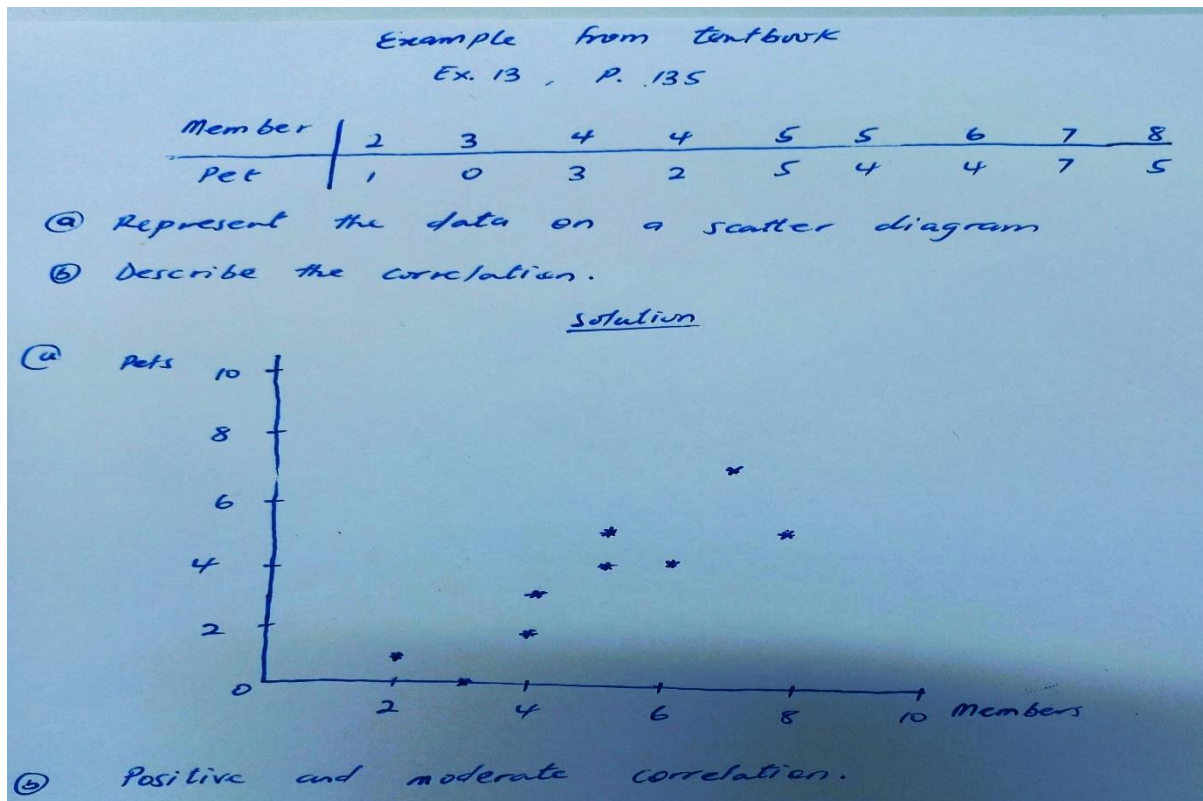 Example from textbook
Ex. 13, P. 135
Member 2 3 4 4 5 5 6 7 8
Pet 1 0 3 2 5 4 4 7 5
(a) Represent the data on a scatter diagram
(b) Describe the correlation.
Solution
(a) Pets
10
8
6
4
2
0
2 4 6 8 10 Members
(b) Positive and moderate correlation.